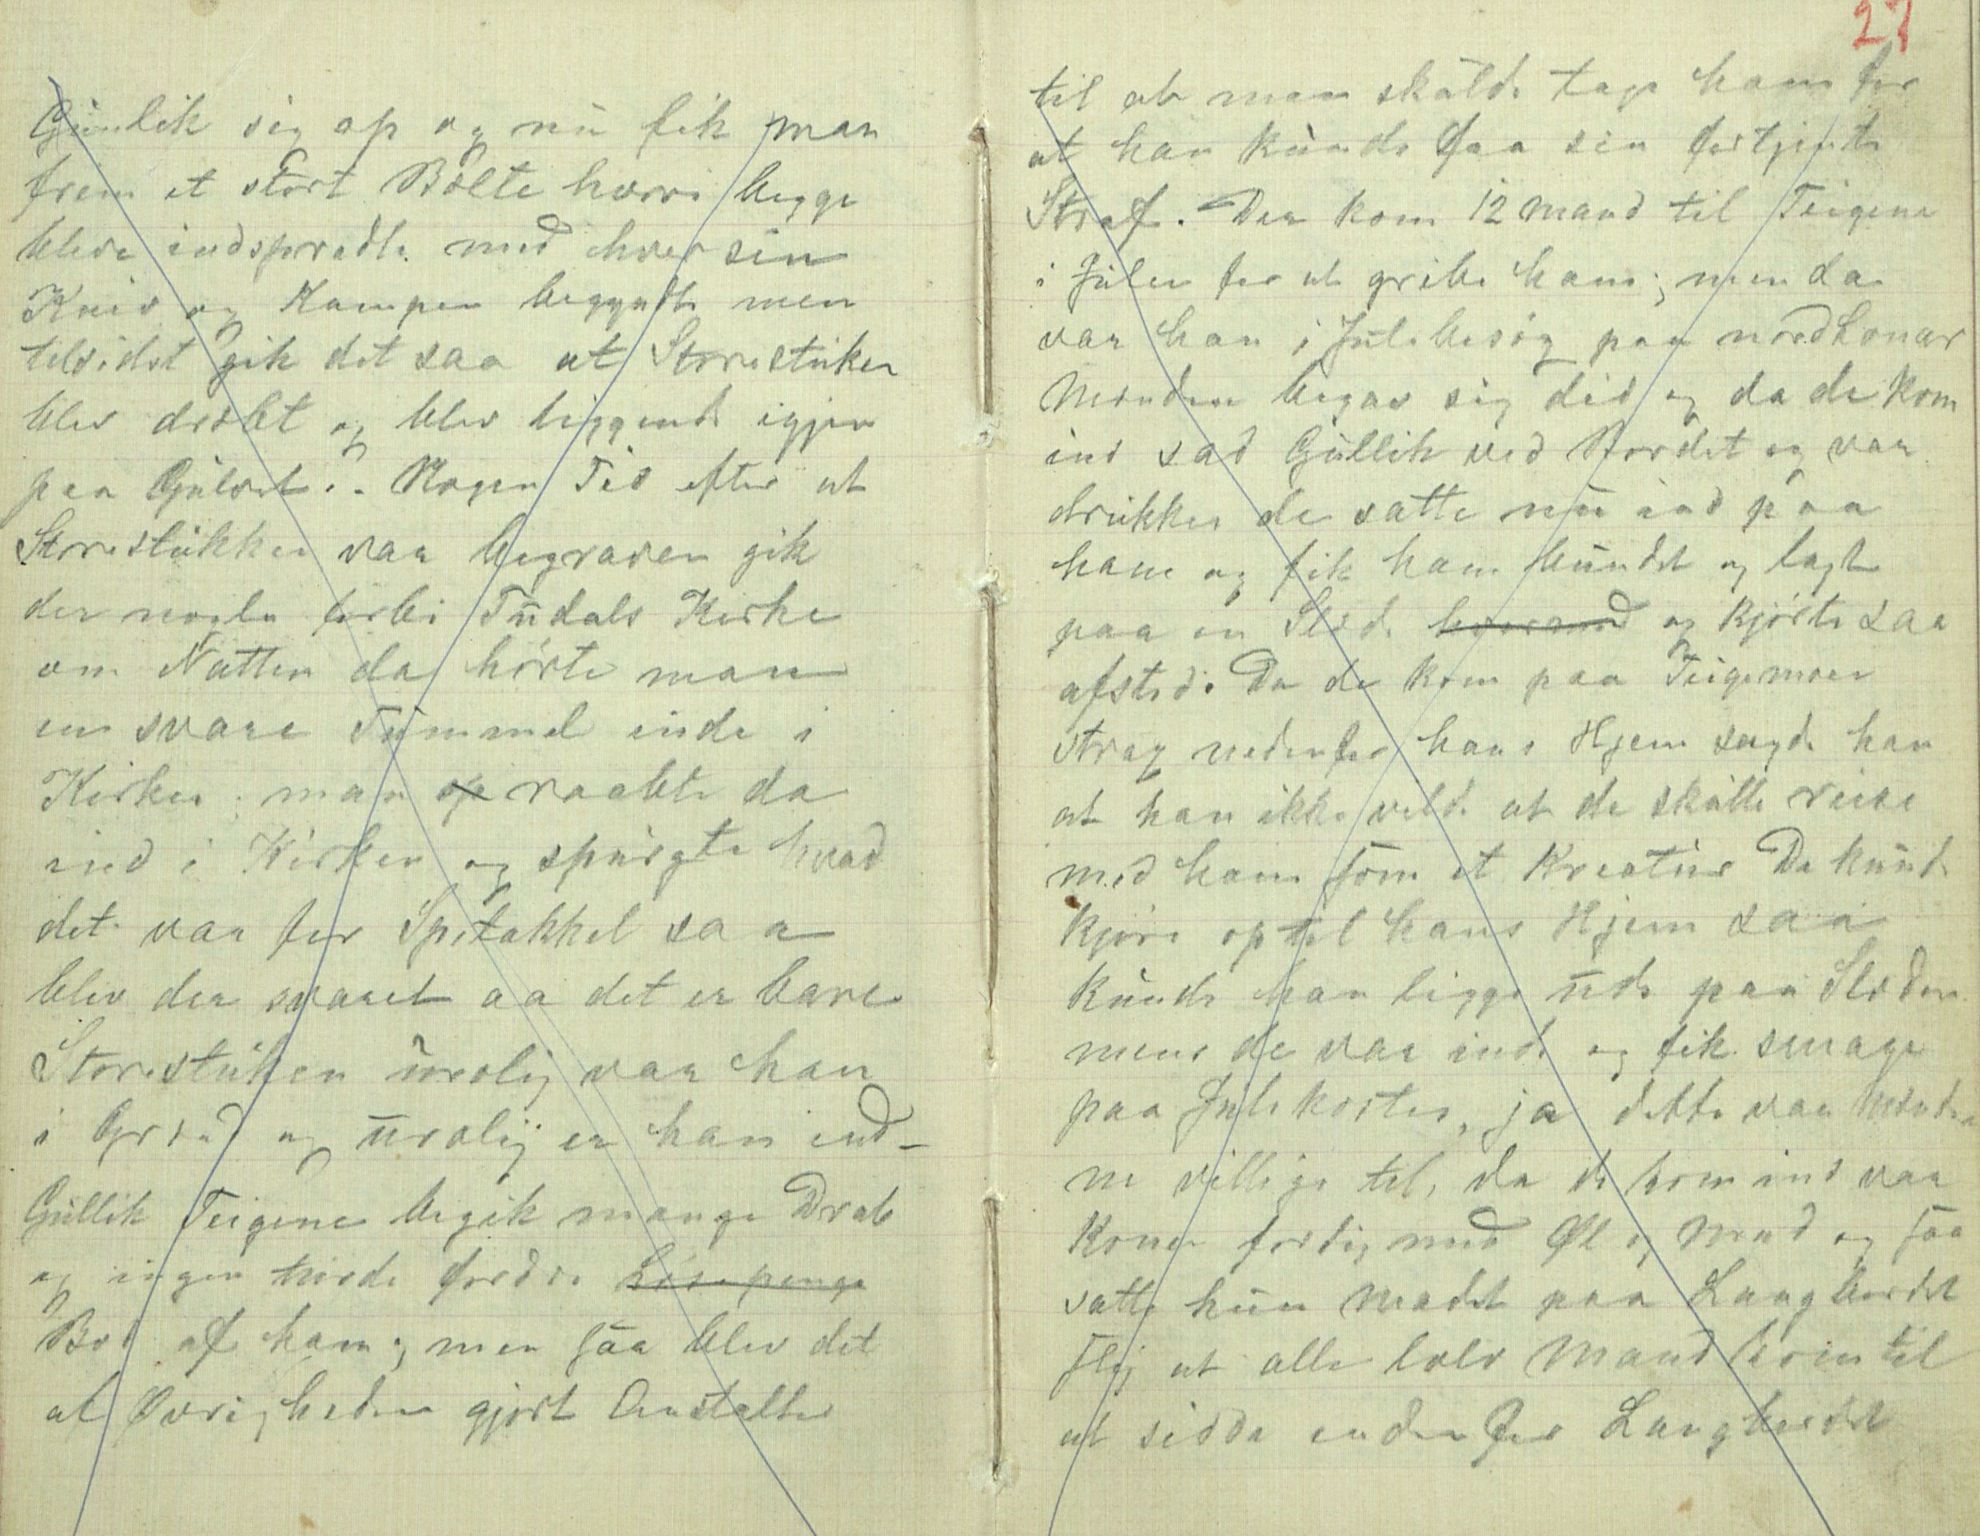 Gunlik sig op og nu fik man
frem et stort Bælte hvori begge
bleve indspredte med hver sin
Kniv og Kampen begyndte men
tilsidst gik det saa at Storestuken
blev dræbt og blev liggende igjen
paa Gulvet. Nogen Tid efter at
Storestukken var begraven gik
der nogle forbi Tudals Kirke
om Natten da hørte man
en svare Tummel inde i
Kirken; man op raabte da
ind i Kirken og spurgte hvad
det var for Spetakkel saa
blev der svaret aa det er bare
Storestuken urolig var han
i og urolig er han end-
Gullik Teigene begik mange Drab
og ingen turde fordre Løsepenge
Bod af ham; men saa blev det
af Øvrigheden gjort Anstalter
27
til at man skulde tage ham for
at han kunde faa sin fortjente
Straf. Der kom 12 mand til Teigene
i Julen for at gribe ham; men da
var han i Julebesøg paa nordLonar
Mændene begav sig did og da de kom
ind sad Gullik ved Bordet og var
drukken de satte nu ind paa
ham og fik ham bundet og lagt
paa en Slæde og kjørte saa
afsted. Da de kom paa Teigemoen
strax nedenfor hans Hjem sagde han
at han ikke vilde at de skulle reise
med ham som et Kreatur De kunde
kjøre op til hans Hjem saa
kunde han ligge ude paa Slæden
mens de var inde og fik smage
paa Julekosten, ja dette var Mænde
ne villige til, da de kom ind var
Konen færdig med Øl og Mad og saa
satte hun Madet paa Langbordet
slig at alle tolv Mand kom til
at sidde indenfor Langbordet